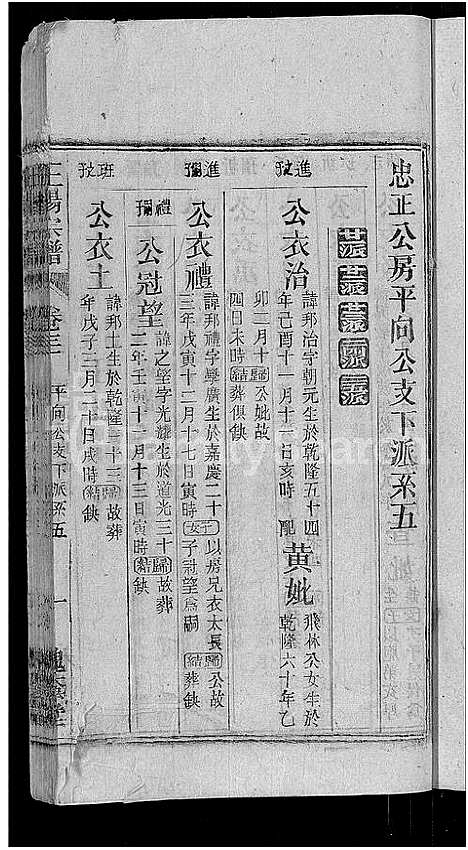 忠正公房平向公支下派系五
進
公衣治
諱邦治字朝元生於乾隆五十四
年己酉十一月十一日亥時
配
黃妣
飛林公女生於
乾隆六十年乙
卯二月十
歸
公妣故
四日未時
結
葬俱缺
進
公衣禮
諱邦禮字學廣生於嘉慶二十
三年戊寅十二月十七日寅時
以房兄衣太長
子冠望為嗣
歸
公故
結
葬缺
禮
公冠望
諱之望字光耀生於道光二十
二年壬寅十二月十三日寅時
歸
故葬
結
缺
班
公衣土
諱邦土生於乾隆三十三
年戊子二月二十日戌時
歸
故葬
結
缺
宗譜
卷三
平向公支下派系五
一